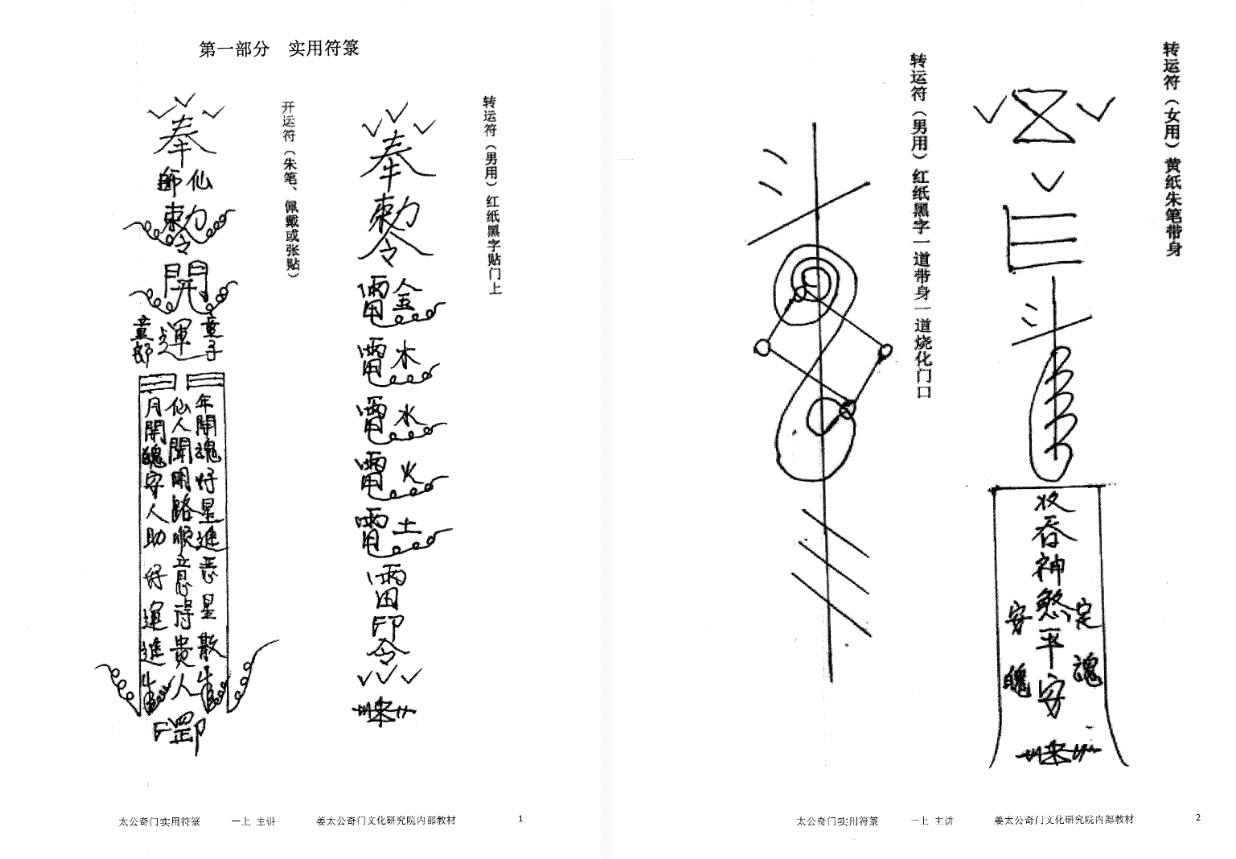 第一部分　实用符箓
转运符（男用）红纸黑字贴门上
奉
勅令
雷金
雷木
雷水
雷火
雷土
雷
印
令
开运符（朱笔、佩戴或张贴）
奉
仙師
勅令
開
運
童子
童郎
年開魂好星進恶星散
仙人開明路順意得貴人
月開魄守人助好運進
罡印
太公奇门实用符箓　一上 主讲　姜太公奇门文化研究院内部教材　1
转运符（女用）黄纸朱笔带身
吞神煞平安
定魂
安魄
转运符（男用）红纸黑字一道带身一道烧化门口
太公奇门实用符箓　一上 主讲　姜太公奇门文化研究院内部教材　2